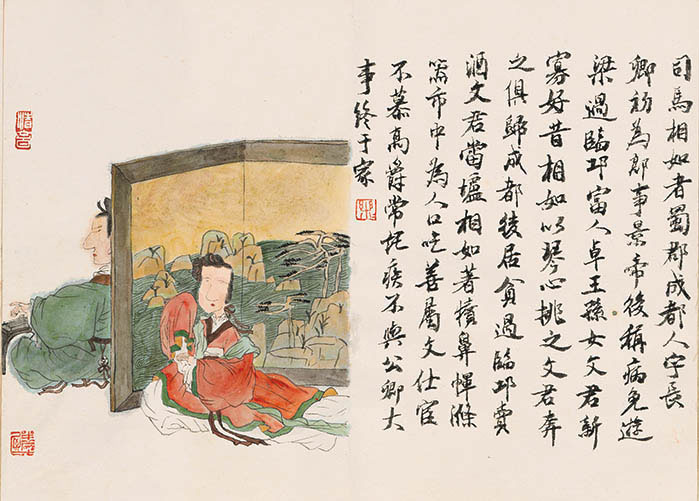 司馬相如者蜀郡成都人字長
卿初為郎事景帝後稱病免遊
梁過臨邛富人卓王孫女文君新
寡好音相如以琴心挑之文君奔
之俱歸成都後居貧過臨邛賣
酒文君當壚相如著犢鼻褌滌
器市中為人口吃善屬文仕宦
不慕高爵常托疾不與公卿大
事終于家